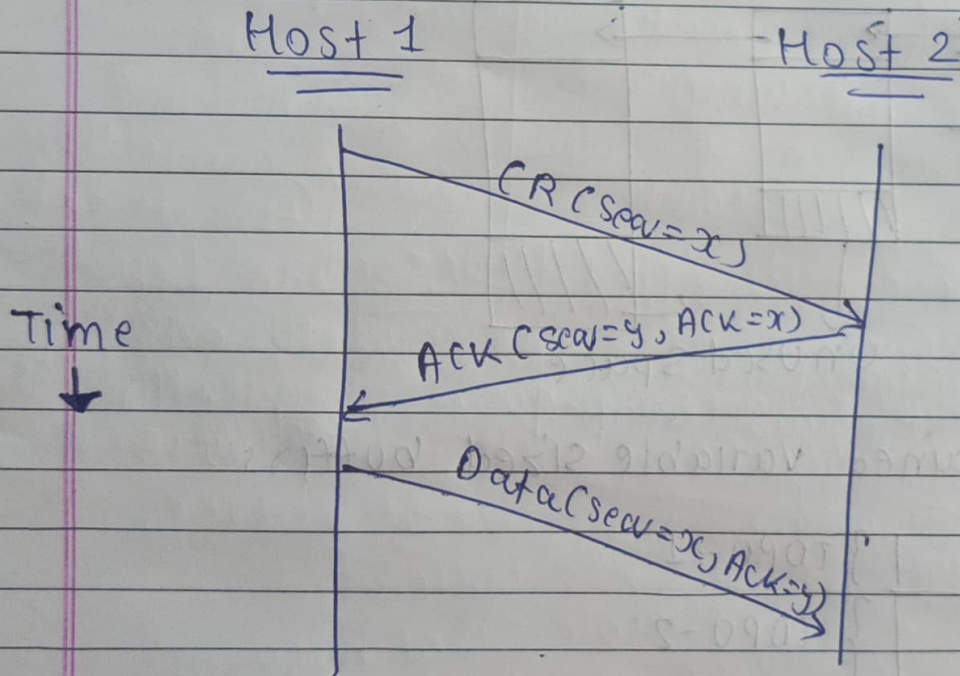 Host 1
Host 2
CR (seq=x)
Time
ACK (seq=y, ACK=x)
Data (seq=x, ACK=y)